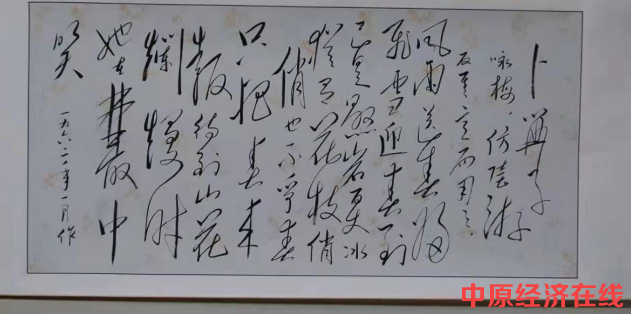 卜算子
咏梅，仿陆游
反其意而用之
风雨送春归
飞雪迎春到
已是悬 冰
犹有花枝俏
俏也不争春
只把春来
报待到山花
烂漫时
她在丛中
笑
一九六二年一月作
中原经济在线